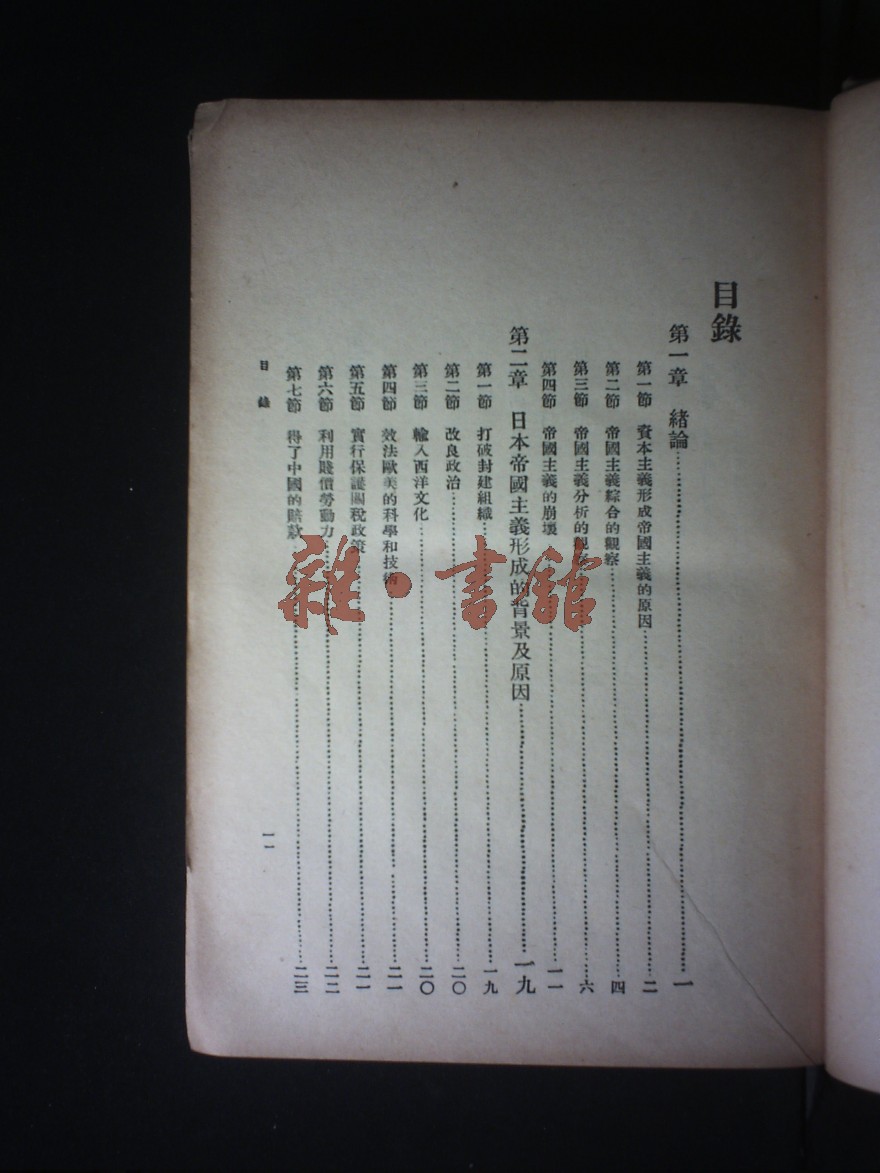 目錄
第一章 緒論……一
第一節 資本主義形成帝國主義的原因……二
第二節 帝國主義綜合的觀察……四
第三節 帝國主義分析的觀察……六
第四節 帝國主義的崩壞……一一
第二章 日本帝國主義形成的背景及原因……一九
第一節 打破封建組織……一九
第二節 改良政治……二〇
第三節 輸入西洋文化……二〇
第四節 效法歐美的科學和技術……二一
第五節 實行保護關稅政策……二一
第六節 利用賤價勞動力……二二
第七節 得了中國的賠款……二三
目錄
一一
雜·書館